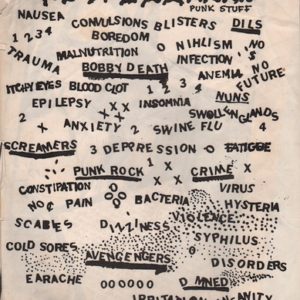 PUNK STUFF
NAUSEA CONVULSIONS BLISTERS DILS
1 2 3 4 BOREDOM
TRAUMA MALNUTRITION NIHLISM NO NO
BOBBY DEATH INFECTION FUTURE
ITCHY EYES BLOOD CLOT 1 2 3 4 ANEMIA
EPILEPSY X X X INSOMNIA NUNS
2 X ANXIETY 2 SWINE FLU SWOLLEN GLANDS 4
SCREAMERS 3 DEPRRESSION O FATIGUE
PUNK ROCK 1 X X CRIME X
CONSTIPATION VIRUS
NO ¢ PAIN BACTERIA HYSTERIA
SCABIES DIZZINESS VIOLENCE
COLD SORES SYPHILUS
AVENGENGERS DISORDERS
EARACHE OOOOOO DMNED